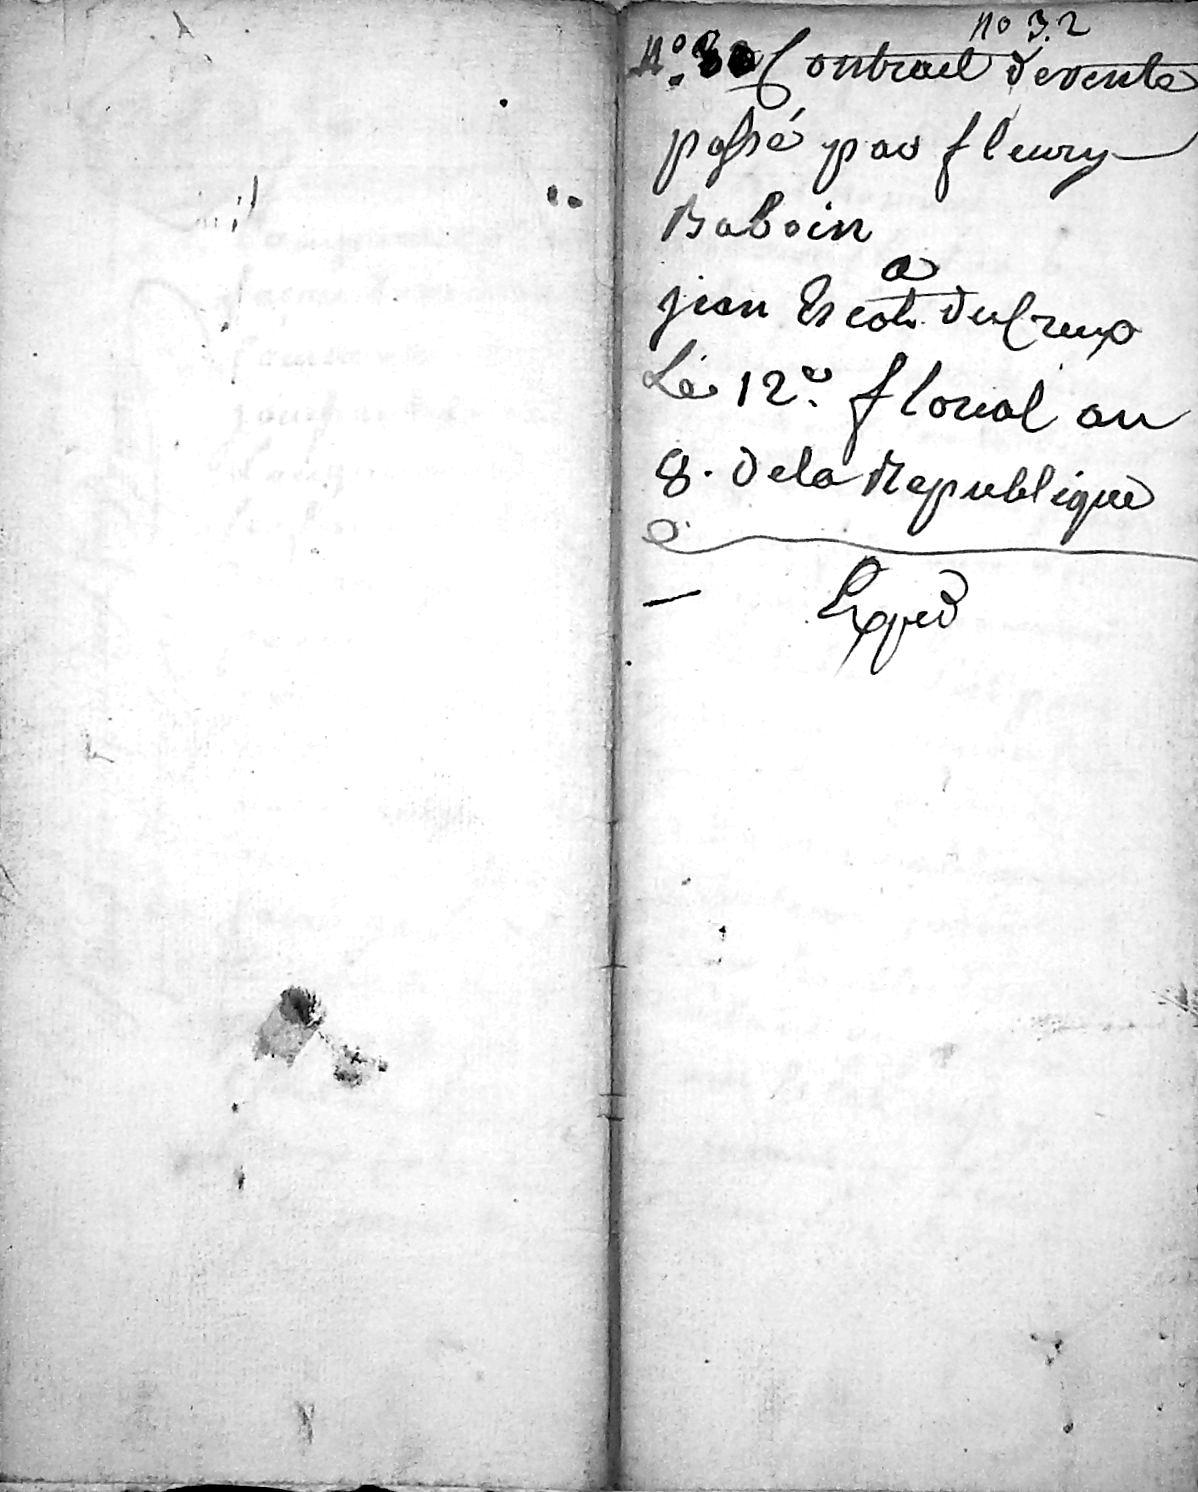 no 32
No. 3 Contract devente
passé par fleury
Baboin
a
jean Escot. du Creux
Le 12e. floreal an
8. dela Republique
Exped